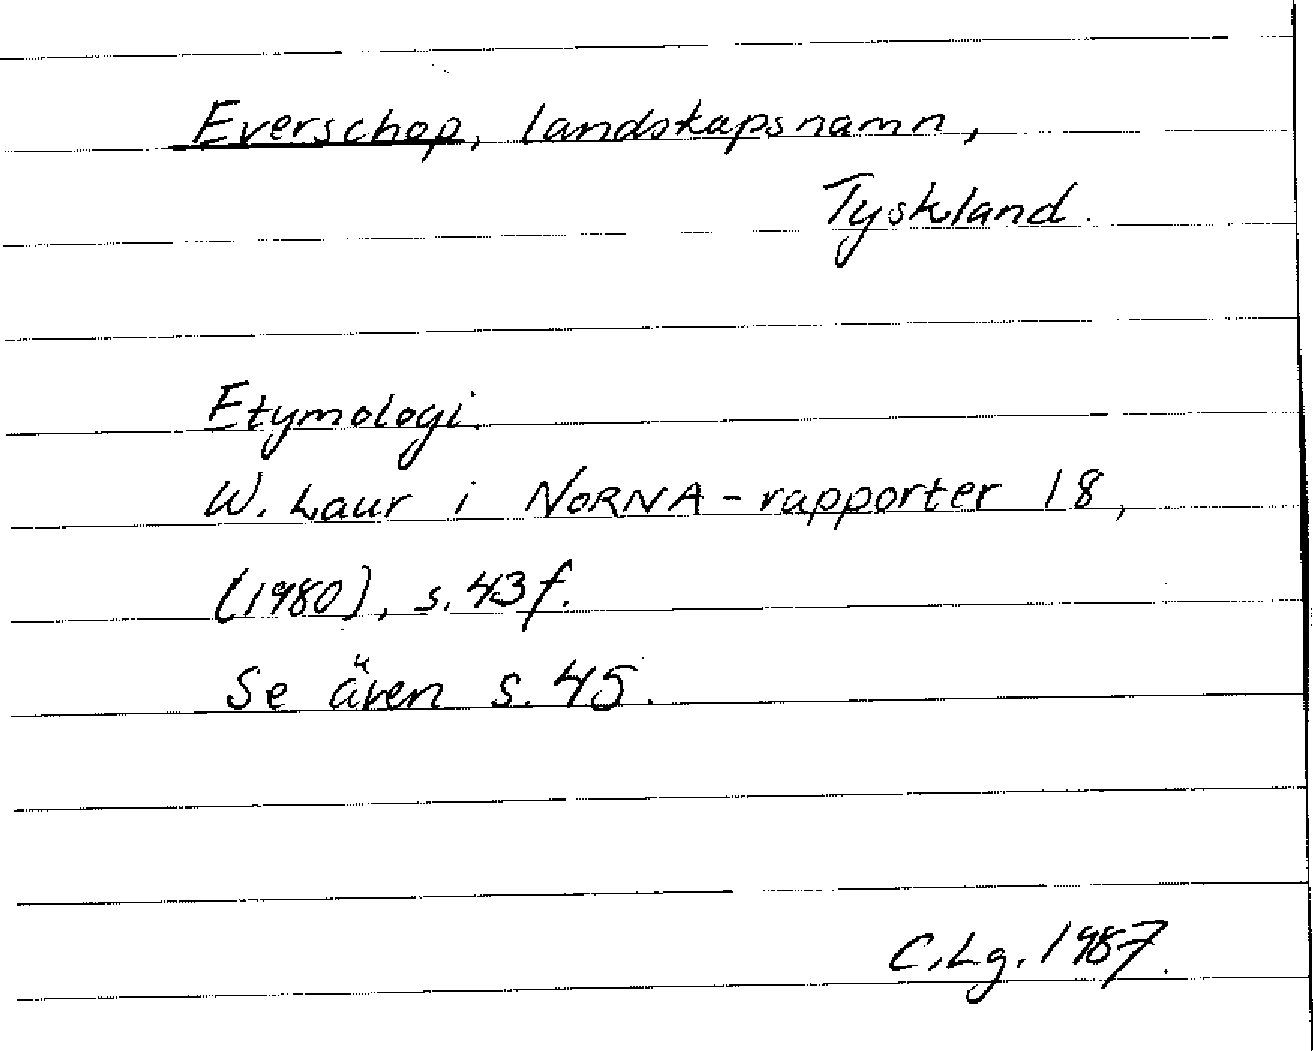 Everschop, landskapsnamn,
Tyskland.
Etymologi.
W. Laur i NORNA-rapporter 18,
(1980), s. 43 f.
Se även s. 45.
C.Lg. 1987.